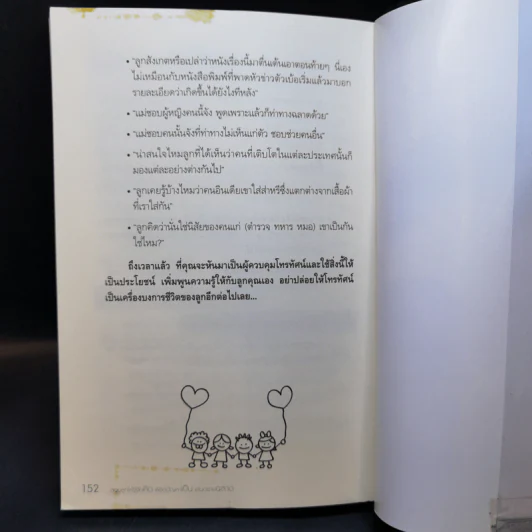 • "ลูกสังเกตหรือเปล่าว่าหนังเรื่องนี้มาตื่นเต้นเอาตอนท้ายๆ นี่เอง
ไม่เหมือนกับหนังสือพิมพ์ที่พาดหัวข่าวตัวเบ้อเริ่มแล้วมาบอก
รายละเอียดว่าเกิดขึ้นได้ยังไงทีหลัง"
• "แม่ชอบผู้หญิงคนนี้จัง พูดเพราะแล้วก็ท่าทางฉลาดด้วย"
• "แม่ชอบคนนั้นจังที่ท่าทางไม่เห็นแก่ตัว ชอบช่วยคนอื่น"
• "น่าสนใจไหมลูกที่ได้เห็นว่าคนที่เติบโตในแต่ละประเทศนั้นก็
มองแต่ละอย่างต่างกันไป"
• "ลูกเคยรู้บ้างไหมว่าคนอินเดียเขาใส่ส่าหรีซึ่งแตกต่างจากเสื้อผ้า
ที่เราใส่กัน"
• "ลูกคิดว่านั่นใช่นิสัยของคนแก่ (ตำรวจ ทหาร หมอ) เขาเป็นกัน
ใช่ไหม?"
ถึงเวลาแล้ว ที่คุณจะหันมาเป็นผู้ควบคุมโทรทัศน์และใช้สิ่งนี้ให้
เป็นประโยชน์ เพิ่มพูนความรู้ให้กับลูกคุณเอง อย่าปล่อยให้โทรทัศน์
เป็นเครื่องบงการชีวิตของลูกอีกต่อไปเลย...
152